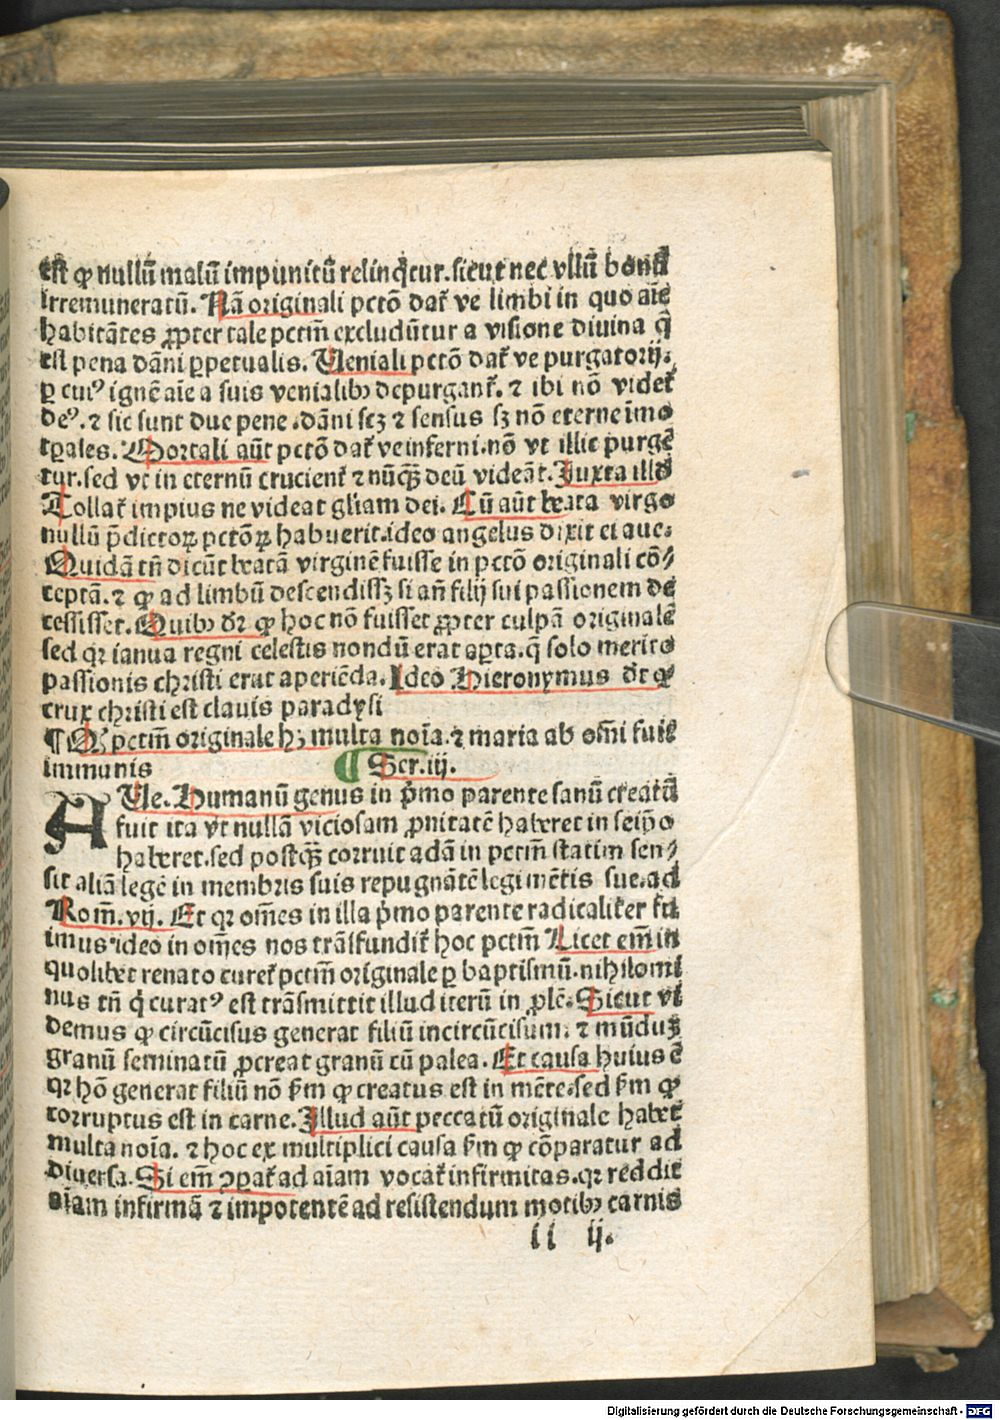 est ꝙ nullū malū impunitū relinq̇tur.sicut nec vllū bonū
irremuneratū. Nā originali pctō dat̄ ve limbi in quo aīe
habitātes ꝓpter tale pctm̄ excludūtur a visione diuina q̄
est pena dāni ꝑpetualis. Veniali pctō dat̄ ve purgatorij.
ꝑ cuiꝰ ignē aīe a suis venialibꝫ depurgant̄. ⁊ ibi nō videt̄
deꝰ. ⁊ sic sunt due pene.dāni scꝫ ⁊ sensus sꝫ nō eterne imo
tꝑales. Mortali aūt pctō dat̄ ve inferni.nō vt illic purgē
tur.sed vt in eternū crucient̄ ⁊ nūqꝫ̄ deū videāt. Juxta illō
Tollat̄ impius ne videat gl̄iam dei. Cū aūt beata virgo
nullū p̄dictoꝝ pctōꝝ habuerit.ideo angelus dixit ei aue.
Quidā tn̄ dicūt beatā virginē fuisse in pctō originali cō⸗
ceptā. ⁊ ꝙ ad limbū descendissꝫ si an̄ filij sui passionem de
cessisset. Quibꝫ dr̄ ꝙ hoc nō fuisset ꝓpter culpā originalē
sed qꝛ ianua regni celestis nondū erat aꝑta.q̄ solo merito
passionis christi erat aperiēda. Ideo Hieronymus dt̄ ꝙ
crux christi est clauis paradysi
¶ Q pctm̄ originale hꝫ multa noīa.⁊ maria ab om̄i fuit
immunis ¶ Ser.iij.
AVe. Humanū genus in p̄mo parente sanū creatū
fuit ita vt nullā viciosam ꝓnitatē haberet in seip̄o
haberet.sed postqꝫ̄ corruit adā in pctm̄ statim sen⸗
sit aliā legē in membris suis repugnātē legi mētis sue.ad
Rom̄. vij. Et qꝛ om̄es in illa p̄mo parente radicalit̄er fu
imus ideo in om̄es nos trāsfundit̄ hoc pctm̄ Licet em̄ in
quolibet renato curet̄ pctm̄ originale ꝑ baptismū.nihilomi
nus tn̄ q̇ curatꝰ est trāsmittit illud iterū in ꝓlē. Sicut vi
demus ꝙ circūcisus generat filiū incircūcisum. ⁊ mūduꝫ
granū seminatū ꝓcreat granū cū palea. Et causa huius ē
qꝛ hō generat filiū nō ẜm ꝙ creatus est in mēte.sed ẜm ꝙ
corruptus est in carne. Illud aūt peccatū originale habet
multa noīa. ⁊ hoc ex multiplici causa ẜm ꝙ cōparatur ad
diuersa. Si em̄ ꝯꝑat̄ ad aīam vocat̄ infirmitas.qꝛ reddit
aīam infirmā ⁊ impotentē ad resistendum motibꝫ carnis
ii ij.
Digitalisierung gefördert durch die Deutsche Forschungsgemeinschaft - DFG